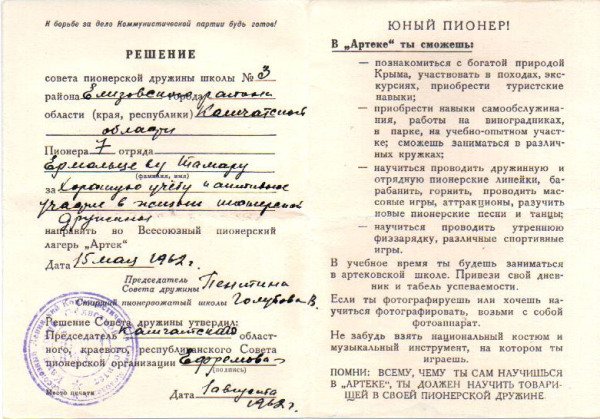 К борьбе за дело Коммунистической партии будь готов!
РЕШЕНИЕ
совета пионерской дружины школы № 3
района Елизовского района города
области (края, республики) Камчатской
области
Пионера 7 отряда
Тамару
(фамилия, имя)
за Хорошую учёбу и активное
участие в жизни пионерской
дружины
направить во Всесоюзный пионерский
лагерь „Артек"
Дата 15 мая 1962 г.
Председатель
Совета дружины
Старший пионервожатый школы Голубова В.
Решение Совета дружины утвердил:
Председатель Камчатского област-
ного, краевого, республиканского Совета
пионерской организации Ефремова
(подпись)
Место печати
Дата 1 августа
1962 г.
ЮНЫЙ ПИОНЕР!
В „Артеке" ты сможешь:
— познакомиться с богатой природой
Крыма, участвовать в походах, экс-
курсиях, приобрести туристские
навыки;
— приобрести навыки самообслужива-
ния, работы на виноградниках,
в парке, на учебно-опытном участ-
ке; сможешь заниматься в различ-
ных кружках;
— научиться проводить дружинную и
отрядную пионерские линейки, ба-
рабанить, горнить, проводить мас-
совые игры, аттракционы, разучить
новые пионерские песни и танцы;
— научиться проводить утреннюю
физзарядку, различные спортивные
игры.
В учебное время ты будешь заниматься
в артековской школе. Привези свой днев-
ник и табель успеваемости.
Если ты фотографируешь или хочешь на-
учиться фотографировать, возьми с собой
фотоаппарат.
Не забудь взять национальный костюм и
музыкальный инструмент, на котором ты
играешь.
ПОМНИ: ВСЕМУ, ЧЕМУ ТЫ САМ НАУЧИШЬСЯ
В „АРТЕКЕ", ТЫ ДОЛЖЕН НАУЧИТЬ ТОВАРИ-
ЩЕЙ В СВОЕЙ ПИОНЕРСКОЙ ДРУЖИНЕ.